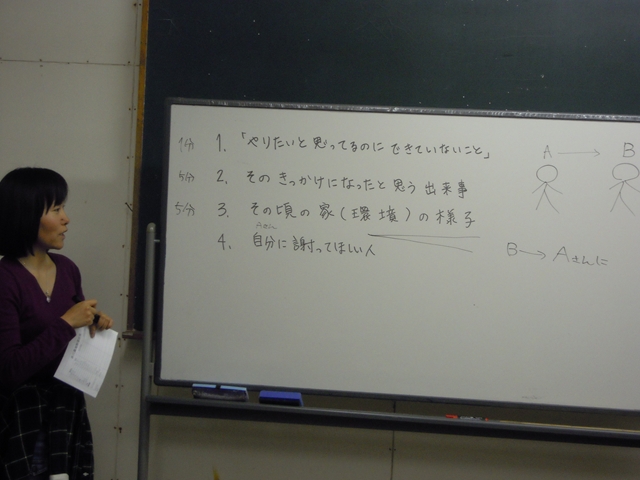 1分 1. 「やりたいと思ってるのに できていないこと」
5分 2. その きっかけになったと 思う 出来事
5分 3. その頃の 家(環境)の 様子
4. 自分に 謝ってほしい人
Aさん
A → B
B → Aさんに